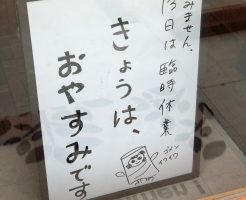 みません、
13日は臨時休業
きょうは、
おやすみです
ゴメン